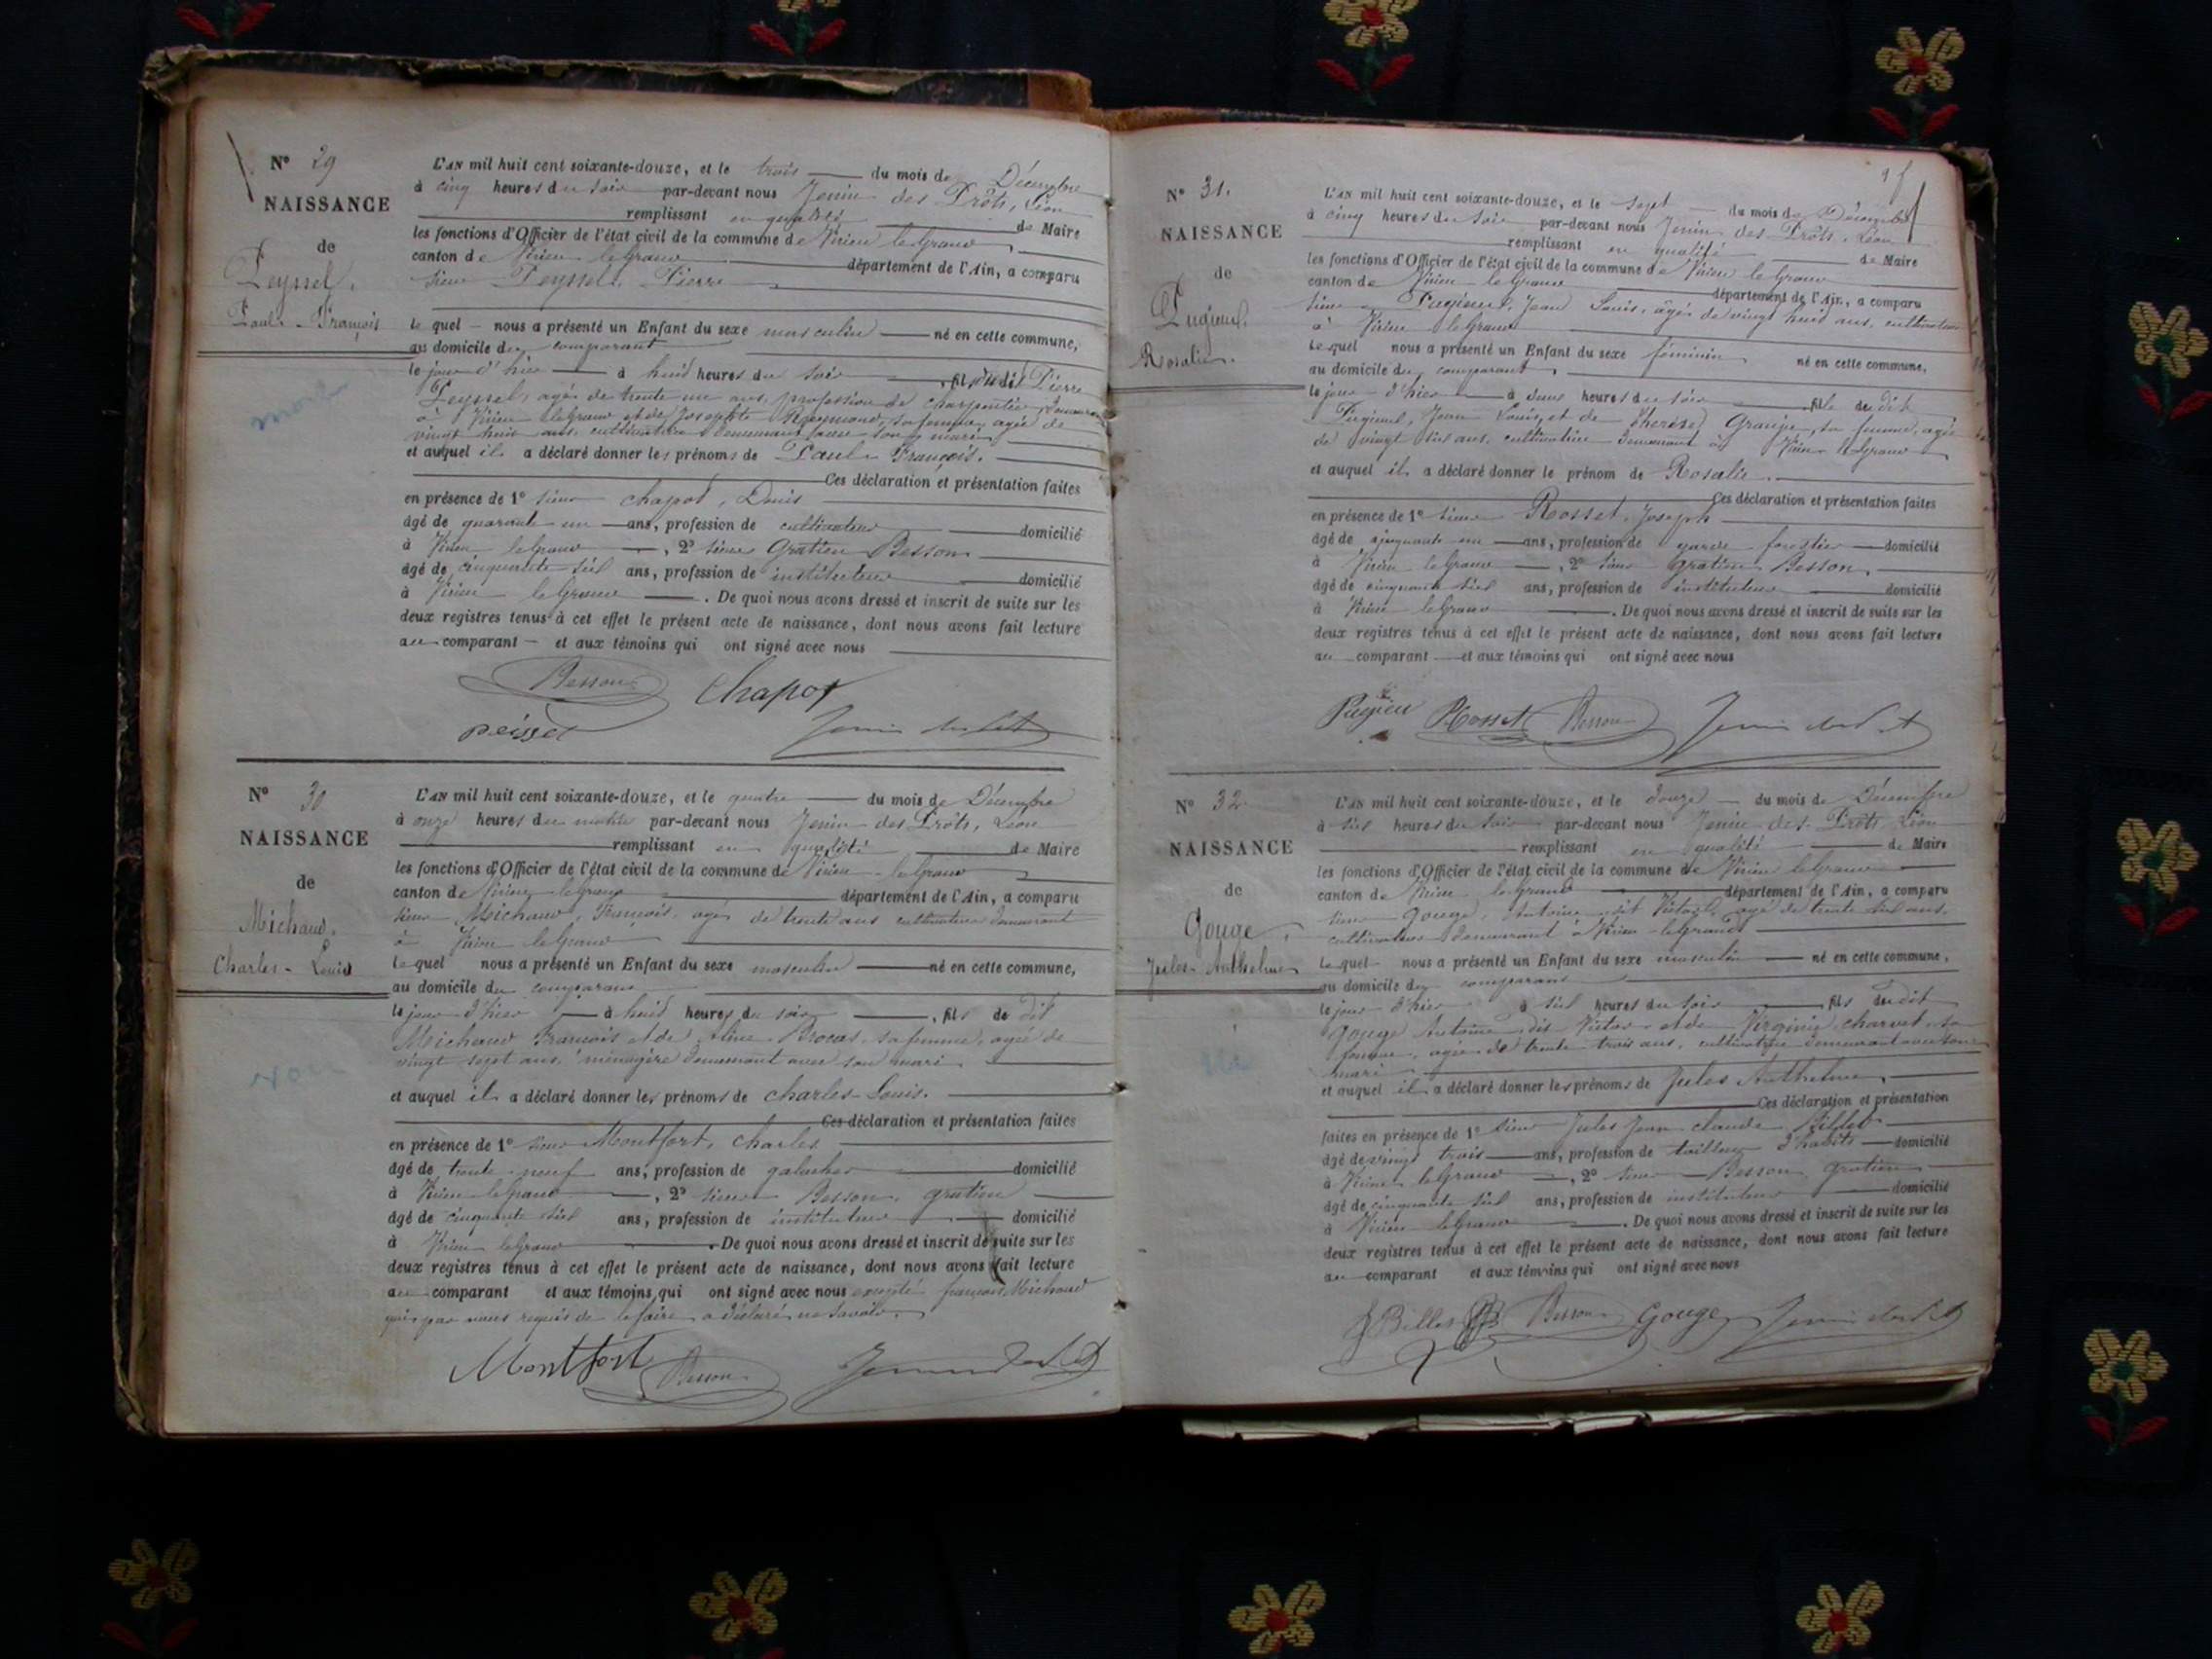 N° 29
NAISSANCE
de
Peyssel,
Paul - François
L'AN mil huit cent soixante-douze, et le trois du mois de Décembre
à cinq heures du soir par-devant nous Jenin des Prôts, Léon
remplissant en qualité de Maire
les fonctions d'Officier de l'état civil de la commune de Virieu le Grand
canton de Virieu le Grand département de l'Ain, a comparu
sieur Peyssel, Pierre
lequel nous a présenté un Enfant du sexe masculin né en cette commune,
au domicile du comparant
le jour d'hier à huit heures du soir, fils du dit Pierre
Peyssel, agé de trente un ans, profession de charpentier, demeurant
à Virieu le Grand et de Josephte Reymond, sa femme, agée de
vingt huit ans, cultivatrice demeurant avec son mari
et auquel il a déclaré donner les prénoms de Paul François.
Ces déclaration et présentation faites
en présence de 1° sieur Chapot, Denis
âgé de quarante un ans, profession de cultivateur domicilié
à Virieu le Grand, 2° sieur Gratien Besson
âgé de cinquante six ans, profession de instituteur domicilié
à Virieu le Grand. De quoi nous avons dressé et inscrit de suite sur les
deux registres tenus à cet effet le présent acte de naissance, dont nous avons fait lecture
au comparant et aux témoins qui ont signé avec nous
Besson Chapot
peissel Jenin des Prôts
N° 30
NAISSANCE
de
Michaud,
Charles - Louis
L'AN mil huit cent soixante-douze, et le quatre du mois de Décembre
à onze heures du matin par-devant nous Jenin des Prôts, Léon
remplissant en qualité de Maire
les fonctions d'Officier de l'état civil de la commune de Virieu le Grand
canton de Virieu le Grand département de l'Ain, a comparu
sieur Michaud, François, agé de trente ans cultivateur demeurant
à Virieu le Grand
lequel nous a présenté un Enfant du sexe masculin né en cette commune,
au domicile du comparant
le jour d'hier à huit heures du soir, fils du dit
Michaud François et de Aline Brocas, sa femme, agée de
vingt sept ans, ménagère demeurant avec son mari
et auquel il a déclaré donner les prénoms de Charles-Louis.
Ces déclaration et présentation faites
en présence de 1° sieur Montfort, Charles
âgé de trente neuf ans, profession de galocher domicilié
à Virieu le Grand, 2° sieur Besson, Gratien
âgé de cinquante six ans, profession de instituteur domicilié
à Virieu le Grand. De quoi nous avons dressé et inscrit de suite sur les
deux registres tenus à cet effet le présent acte de naissance, dont nous avons fait lecture
au comparant et aux témoins qui ont signé avec nous excepté françois Michaud
qui par nous requis de le faire a déclaré ne savoir.
Montfort Besson Jenin des Prôts
N° 31.
NAISSANCE
de
Pugieux,
Rosalie.
L'AN mil huit cent soixante-douze, et le sept du mois de Décembre
à cinq heures du soir par-devant nous Jenin des Prôts, Léon
remplissant en qualité de Maire
les fonctions d'Officier de l'état civil de la commune de Virieu le Grand
canton de Virieu le Grand département de l'Ain, a comparu
sieur Pugieux, Jean Louis, âgé de vingt huit ans, cultivateur
à Virieu le Grand
lequel nous a présenté un Enfant du sexe féminin né en cette commune,
au domicile du comparant,
le jour d'hier à deux heures du soir, fille du dit
Pugieux, Jean Louis, et de Therèse Grange, sa femme, agée
de vingt six ans, cultivatrice demeurant à Virieu le Grand
et auquel il a déclaré donner le prénom de Rosalie.
Ces déclaration et présentation faites
en présence de 1° sieur Rosset, Joseph
âgé de cinquante un ans, profession de garde forestier domicilié
à Virieu le Grand, 2° sieur Gratien Besson,
âgé de cinquante six ans, profession de instituteur domicilié
à Virieu le Grand. De quoi nous avons dressé et inscrit de suite sur les
deux registres tenus à cet effet le présent acte de naissance, dont nous avons fait lecture
au comparant et aux témoins qui ont signé avec nous
Pugieu Rosset Besson Jenin des Prôts
N° 32
NAISSANCE
de
Gouge,
Jules - Anthelme
L'AN mil huit cent soixante-douze, et le douze du mois de Décembre
à six heures du soir par-devant nous Jenin des Prôts Léon
remplissant en qualité de Maire
les fonctions d'Officier de l'état civil de la commune de Virieu le Grand
canton de Virieu le Grand département de l'Ain, a comparu
sieur Gouge, Antoine dit Victor, agé de trente six ans,
cultivateur demeurant à Virieu-le Grand
lequel nous a présenté un Enfant du sexe masculin né en cette commune,
au domicile du comparant
le jour d'hier à six heures du soir, fils du dit
Gouge Antoine dit Victor et de Virginie Charvet, sa
femme, agée de trente trois ans, cultivatrice demeurant avec son
mari
et auquel il a déclaré donner les prénoms de Jules Anthelme
Ces déclaration et présentation
faites en présence de 1° sieur Jules Jean Claude Billet
âgé de vingt trois ans, profession de tailleur d'habits domicilié
à Virieu le Grand, 2° sieur Besson Gratien
âgé de cinquante six ans, profession de instituteur domicilié
à Virieu le Grand. De quoi nous avons dressé et inscrit de suite sur les
deux registres tenus à cet effet le présent acte de naissance, dont nous avons fait lecture
au comparant et aux témoins qui ont signé avec nous
J Billet Besson Gouge Jenin des Prôts